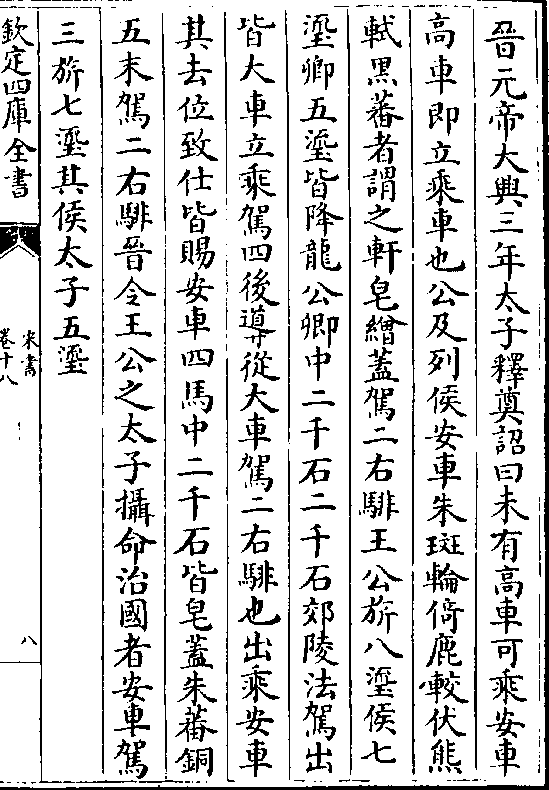 晉元帝大興三年太子釋奠詔曰未有高車可乘安車
高車即立乘車也公及列侯安車朱斑輪倚鹿較伏熊
軾黑蕃者謂之軒皂繒蓋駕二右騑王公旂八瑬侯七
瑬卿五瑬皆降龍公卿中二千石二千石郊陵法駕出
皆大車立乘駕四後導從大車駕二右騑也出乘安車
其去位致仕皆賜安車四馬中二千石皆皂蓋朱蕃銅
五末駕二右騑晉令王公之太子攝命治國者安車駕
三旂七瑬其侯太子五瑬
欽定四庫全書
宋書
卷十八
八